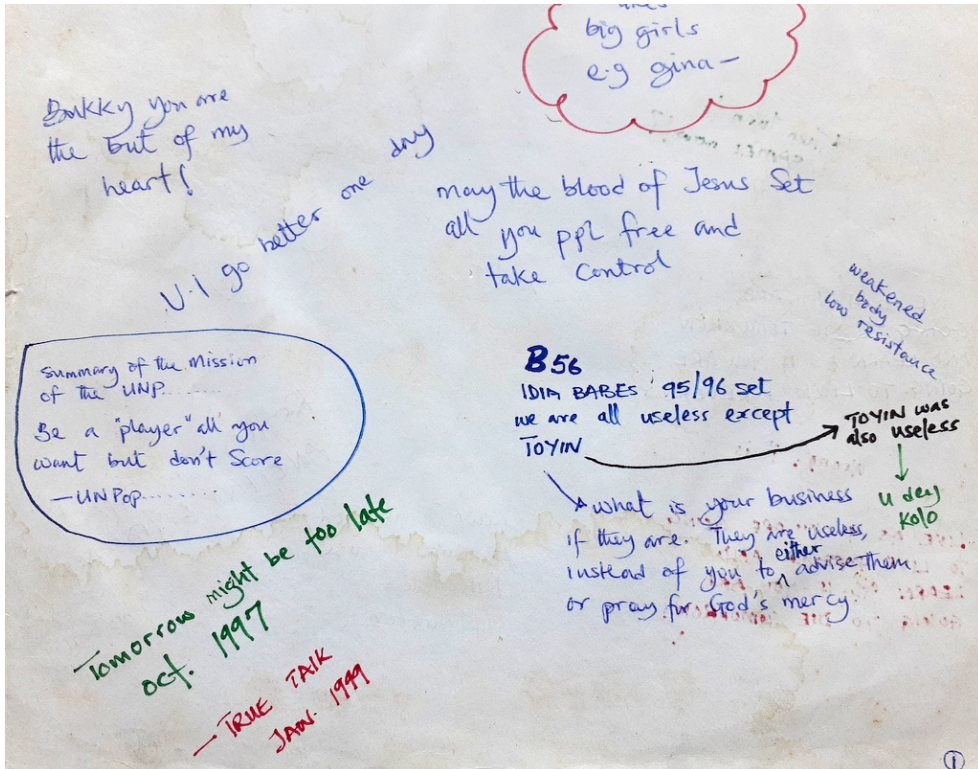 big girls
e.g gina -
Bukky you are
the but of my
heart!
U.I go better one day
may the blood of Jesus Set
all you ppl free and
take control
weakened
body
low resistance
summary of the Mission
of the UNP........
Be a "player" all you
want but don't Score
- UNPOP.........
B56
IDIA BABES '95/96 set
we are all useless except
TOYIN
TOYIN was
also useless
u dey
Kolo
what is your business
if they are. They are useless,
instead of you to either advise them
or pray for God's mercy
Tomorrow might be too late
oct. 1997
- TRUE TALK
JAN. 1999
1